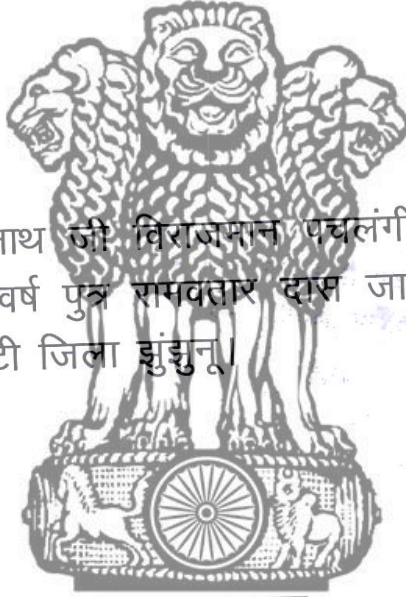 नाथ जी विराजमान पचलंगी
वर्ष पुत्र रामवतार दास जा
टी जिला झुंझुनू।